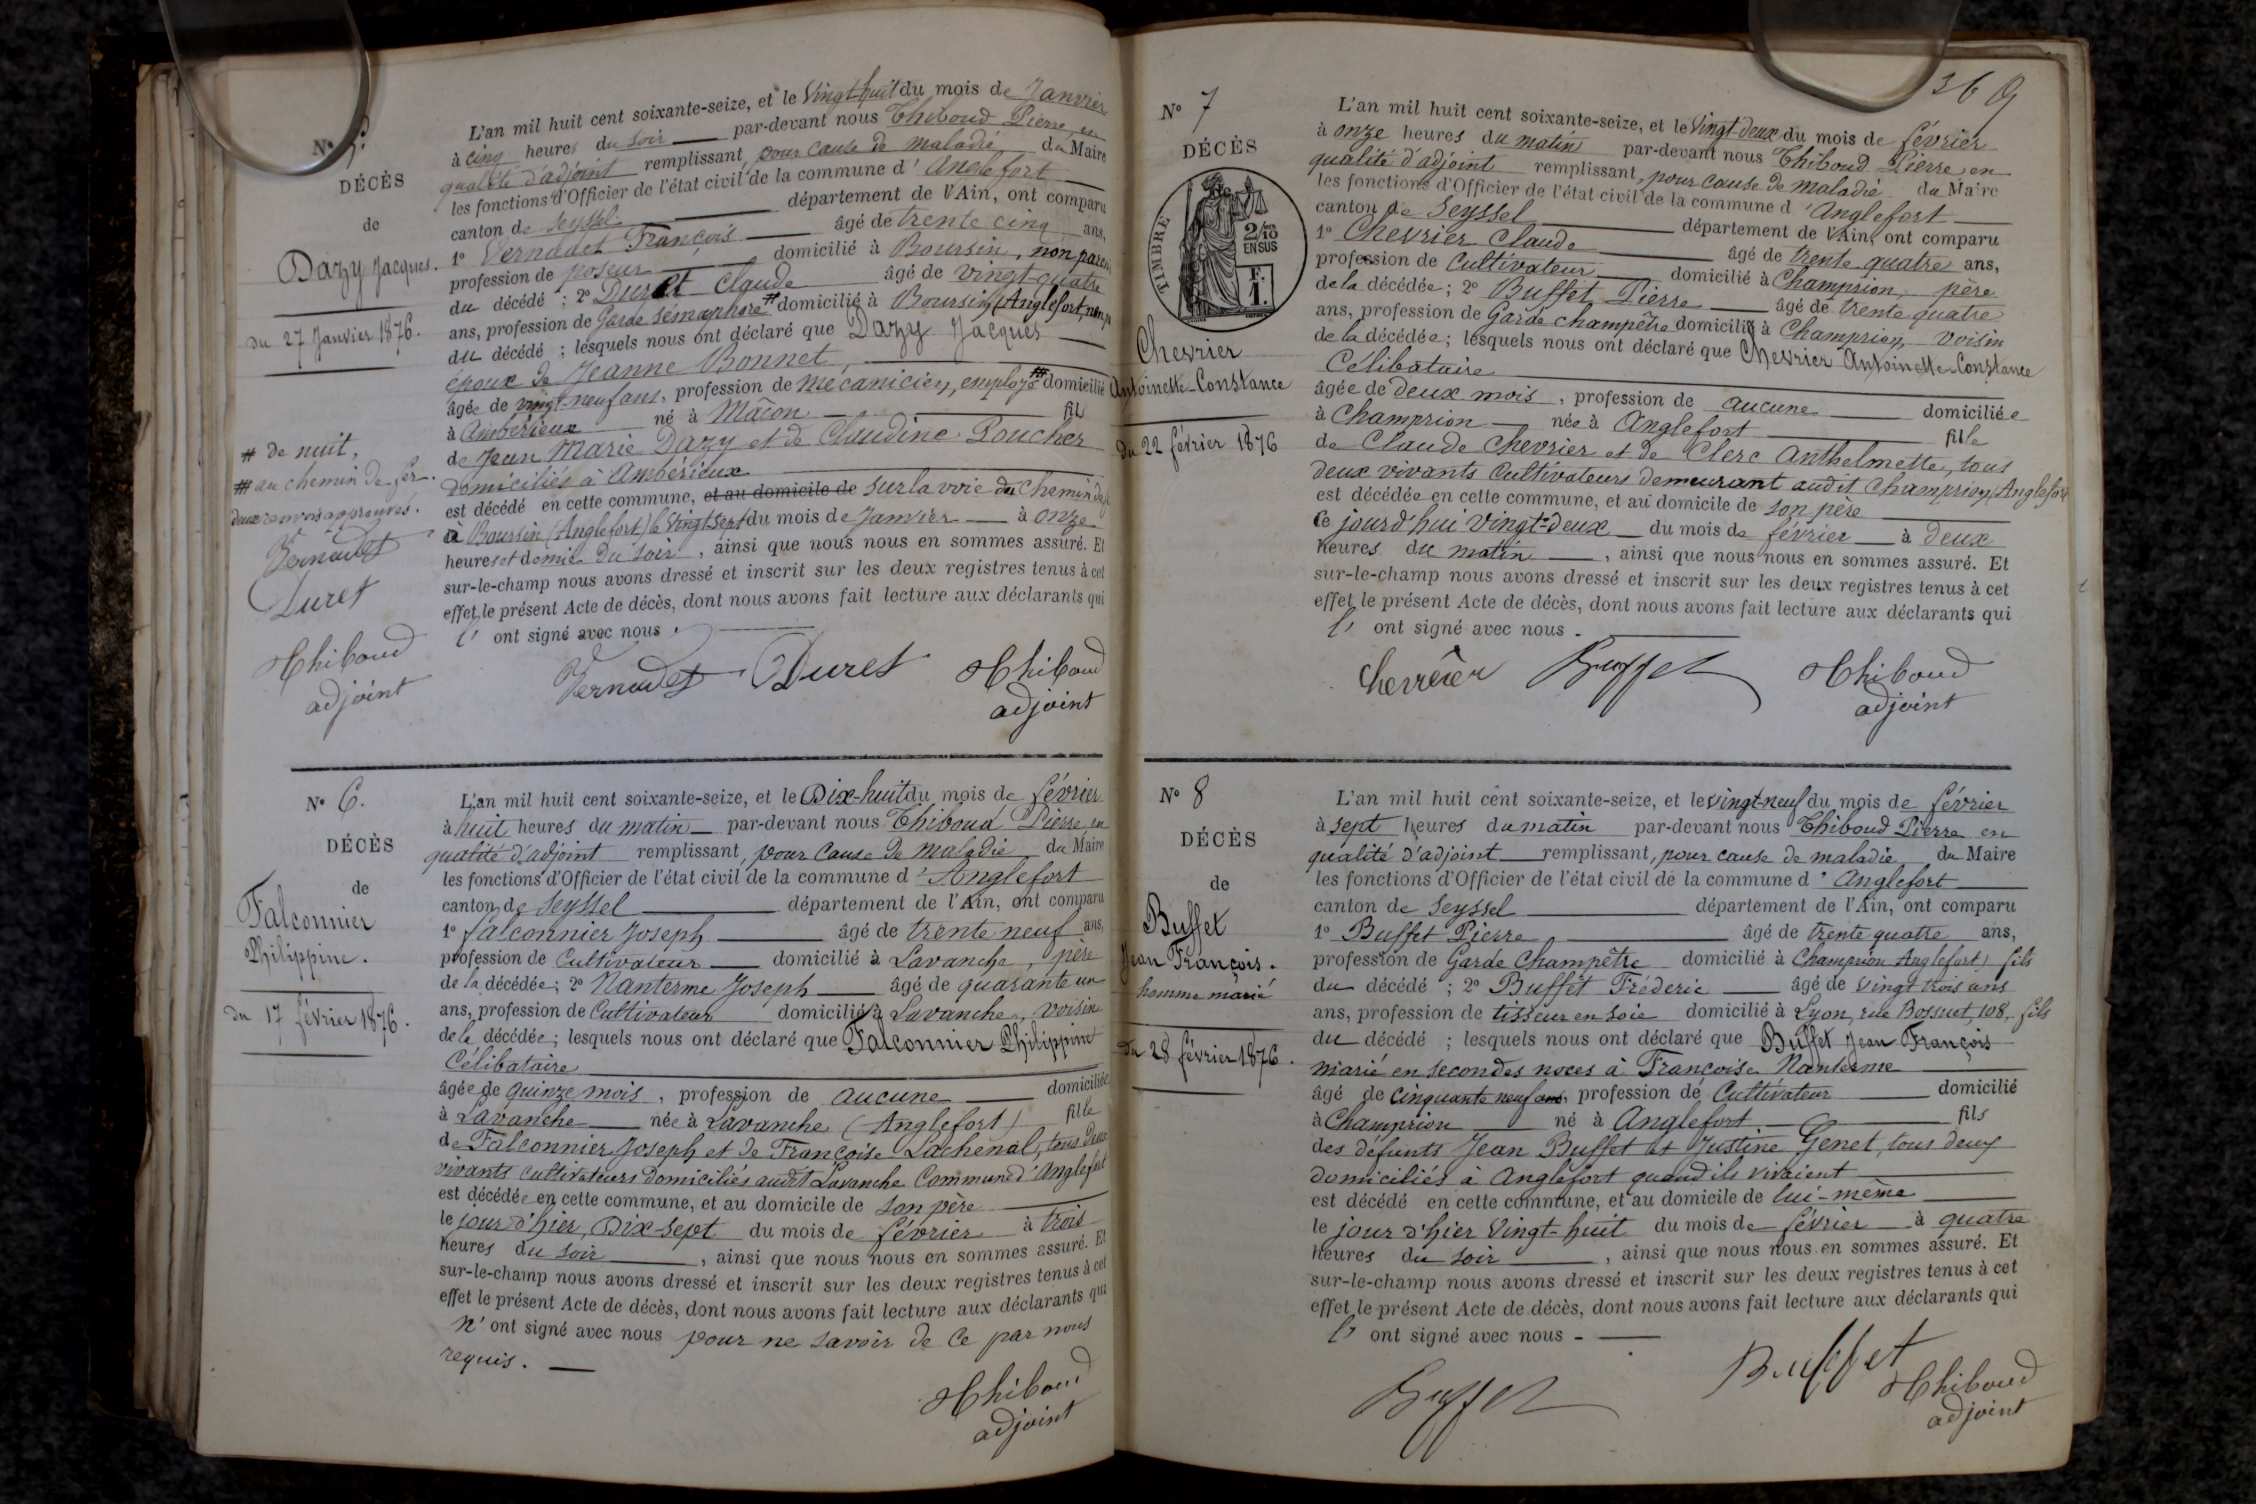 N° 5.
DÉCÈS
de
Dazy Jacques.
du 27 Janvier 1876.
# de nuit,
## au chemin de fer.
deux renvois approuvés.
Vernadet
Duret
Thiboud
adjoint
L'an mil huit cent soixante-seize, et le Vingt-huit du mois de Janvier
à cinq heures du soir par-devant nous Thiboud Pierre, en
qualité d'adjoint remplissant, pour cause de maladie, du Maire
les fonctions d'Officier de l'état civil de la commune d'Anglefort
canton de Seyssel département de l'Ain, ont comparu
1° Vernadet François âgé de trente cinq ans,
profession de poseur domicilié à Boursin, non parent
du décédé ; 2° Duret Claude âgé de vingt-quatre
ans, profession de Garde sémaphore # domicilié à Boursin, (Anglefort, non p
du décédé ; lesquels nous ont déclaré que Dazy Jacques
époux de Jeanne Bonnet,
âgé de vingt-neuf ans, profession de mécanicien, employé ## domicilié
à Ambérieux né à Mâcon fils
de Jean Marie Dazy et de Claudine Poucher
domiciliés à Ambérieux
est décédé en cette commune, et au domicile de sur la voie du Chemin de f
à Boursin (Anglefort) le Vingt sept du mois de Janvier à onze
heures et demie du soir, ainsi que nous nous en sommes assuré. Et
sur-le-champ nous avons dressé et inscrit sur les deux registres tenus à cet
effet le présent Acte de décès, dont nous avons fait lecture aux déclarants qui
l' ont signé avec nous.
Vernadet Duret Thiboud
adjoint
N° 6.
DÉCÈS
de
Falconnier
Philippine.
du 17 février 1876.
L'an mil huit cent soixante-seize, et le Dix-huit du mois de février
à huit heures du matin par-devant nous Thiboud Pierre, en
qualité d'adjoint remplissant, pour cause de maladie du Maire
les fonctions d'Officier de l'état civil de la commune d'Anglefort
canton de Seyssel département de l'Ain, ont comparu
1° falconnier Joseph âgé de trente neuf ans,
profession de Cultivateur domicilié à Lavanche, père
de la décédée ; 2° Nanterme Joseph âgé de quarante un
ans, profession de Cultivateur domicilié à Lavanche, voisin
de la décédée ; lesquels nous ont déclaré que Falconnier Philippine
Célibataire
âgée de quinze mois, profession de aucune domiciliée
à Lavanche née à Lavanche (Anglefort) fille
de Falconnier Joseph et de Françoise Lachenal, tous deux
vivants cultivateurs domiciliés audit Lavanche Commune d'Anglefort
est décédée en cette commune, et au domicile de son père
le jour d'hier, Dix-sept du mois de février à trois
heures du soir, ainsi que nous nous en sommes assuré. Et
sur-le-champ nous avons dressé et inscrit sur les deux registres tenus à cet
effet le présent Acte de décès, dont nous avons fait lecture aux déclarants qui
n' ont signé avec nous pour ne savoir de ce par nous
requis.
Thiboud
adjoint
369
N° 7
DÉCÈS
TIMBRE
2/10 EN SUS
F. 1.
Chevrier
Antoinette-Constance
du 22 février 1876
L'an mil huit cent soixante-seize, et le Vingt-deux du mois de février
à onze heures du matin par-devant nous Thiboud Pierre en
qualité d'adjoint remplissant, pour cause de maladie du Maire
les fonctions d'Officier de l'état civil de la commune d'Anglefort
canton de Seyssel département de l'Ain, ont comparu
1° Chevrier Claude âgé de trente quatre ans,
profession de Cultivateur domicilié à Champrion, père
de la décédée ; 2° Buffet Pierre âgé de trente quatre
ans, profession de Garde champêtre domicilié à Champrion, voisin
de la décédée ; lesquels nous ont déclaré que Chevrier Antoinette-Constance
Célibataire
âgée de deux mois, profession de aucune domiciliée
à Champrion née à Anglefort fille
de Claude Chevrier et de Clerc Anthelmette, tous
deux vivants Cultivateurs demeurant audit Champrion, (Anglefort
est décédée en cette commune, et au domicile de son père
ce jourd'hui vingt-deux du mois de février à deux
heures du matin, ainsi que nous nous en sommes assuré. Et
sur-le-champ nous avons dressé et inscrit sur les deux registres tenus à cet
effet le présent Acte de décès, dont nous avons fait lecture aux déclarants qui
l' ont signé avec nous.
Chevrier Buffet Thiboud
adjoint
N° 8
DÉCÈS
de
Buffet
Jean François.
homme marié
du 28 février 1876.
L'an mil huit cent soixante-seize, et le vingt-neuf du mois de février
à sept heures du matin par-devant nous Thiboud Pierre en
qualité d'adjoint remplissant, pour cause de maladie du Maire
les fonctions d'Officier de l'état civil de la commune d'Anglefort
canton de Seyssel département de l'Ain, ont comparu
1° Buffet Pierre âgé de trente quatre ans,
profession de Garde Champêtre domicilié à Champrion Anglefort) fils
du décédé ; 2° Buffet Fréderic âgé de vingt trois ans
ans, profession de tisseur en soie domicilié à Lyon, rue Bossuet, 108, fils
du décédé ; lesquels nous ont déclaré que Buffet Jean François
marié en secondes noces à Françoise Nanterme
âgé de cinquante neuf ans, profession de Cultivateur domicilié
à Champrion né à Anglefort fils
des défunts Jean Buffet et Justine Genet, tous deux
domiciliés à Anglefort quand ils vivaient
est décédé en cette commune, et au domicile de lui-même
le jour d'hier Vingt-huit du mois de février à quatre
heures du soir, ainsi que nous nous en sommes assuré. Et
sur-le-champ nous avons dressé et inscrit sur les deux registres tenus à cet
effet le présent Acte de décès, dont nous avons fait lecture aux déclarants qui
l' ont signé avec nous -
Buffet Buffet Thiboud
adjoint